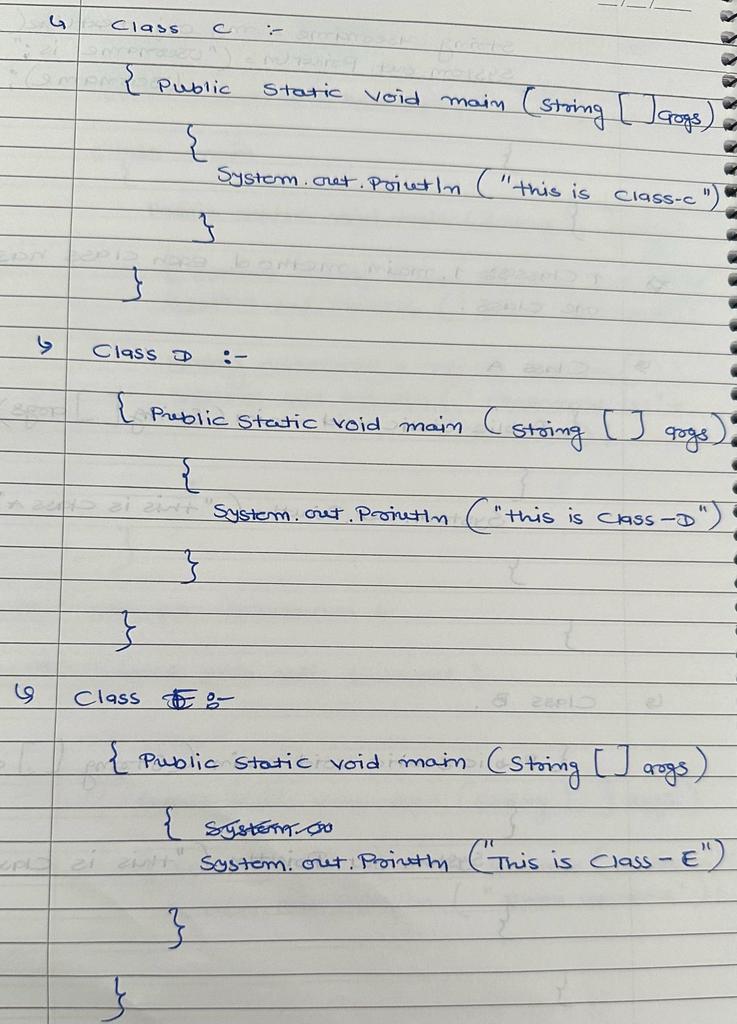 ↳ Class C :-
{ Public static void main (String [ ] args)
{
System.out.Println ("this is class-c")
}
}
↳ Class D :-
{ Public static void main (String [ ] args)
{
System.out.Println ("this is class-D")
}
}
↳ Class E :-
{ Public static void main (String [ ] args)
{
System.out.Println ("This is Class-E")
}
}